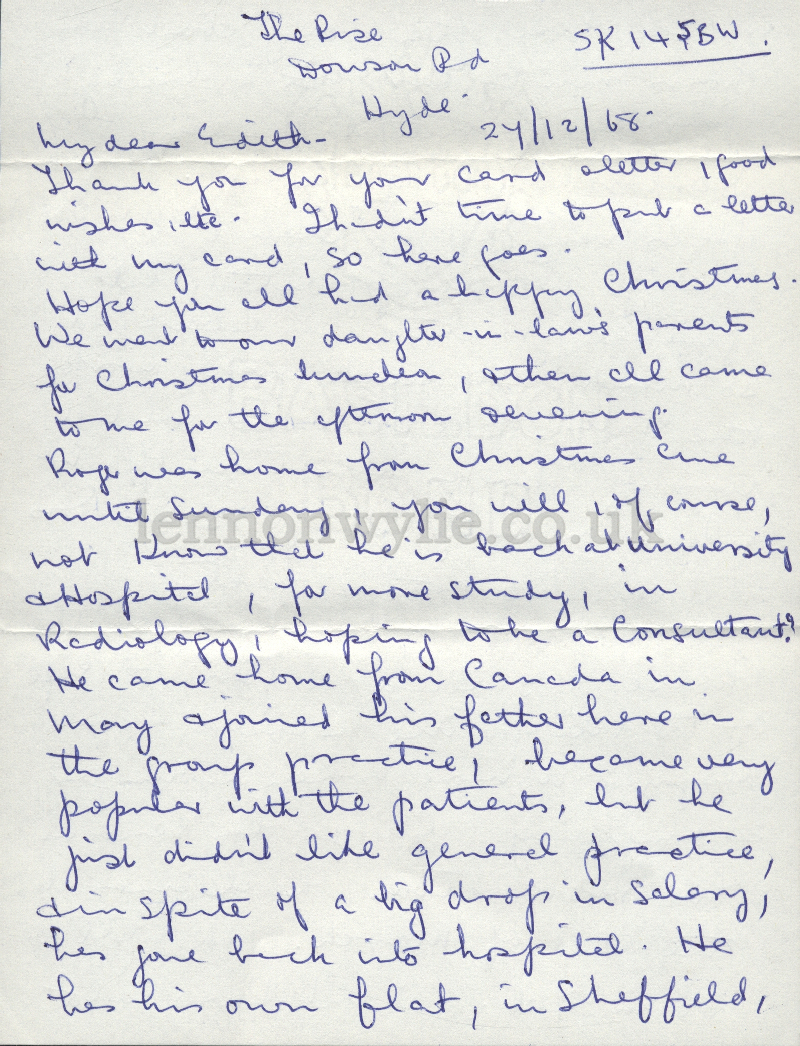 The Rise
SK14 5BW.
Dowson Rd
Hyde.
27/12/68.
My dear Edith-
Thank you for your card & letter, good
wishes, etc. I hadn't time to put a letter
with my card, so here goes.
Hope you all had a happy Christmas.
We went to our daughter-in-law's parents
for Christmas luncheon, & then all came
to me for the afternoon & evening.
Roger was home from Christmas Eve
until Sunday, you will, of course,
lennonwylie.co.uk
not know that he is back at University
& Hospital, for more study, in
Radiology, hoping to be a Consultant?
He came home from Canada in
May & joined his father here in
the group practice, became very
popular with the patients, but he
just didn't like general practice,
& in spite of a big drop in salary,
has gone back into hospital. He
has his own flat, in Sheffield,